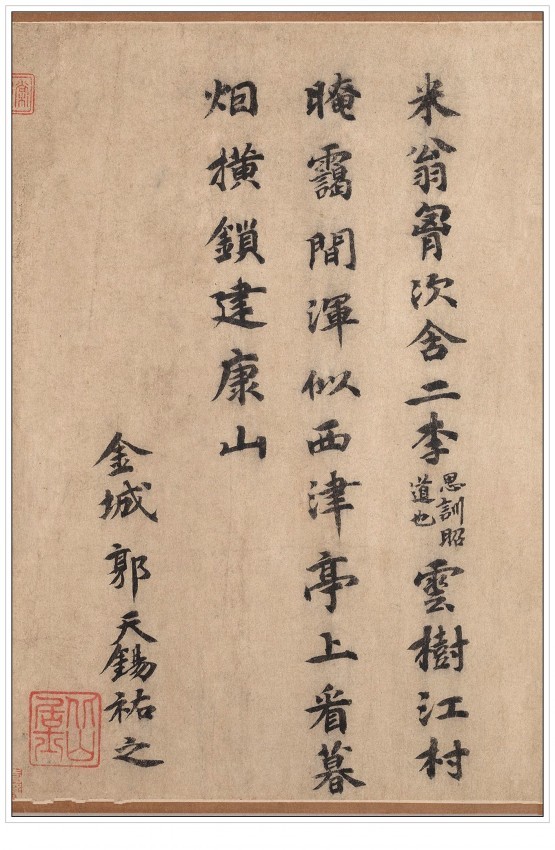 米翁胷次含二李思訓昭道也雲樹江村
晻靄間渾似西津亭上看暮
烟橫鎖建康山
金城郭天錫祐之